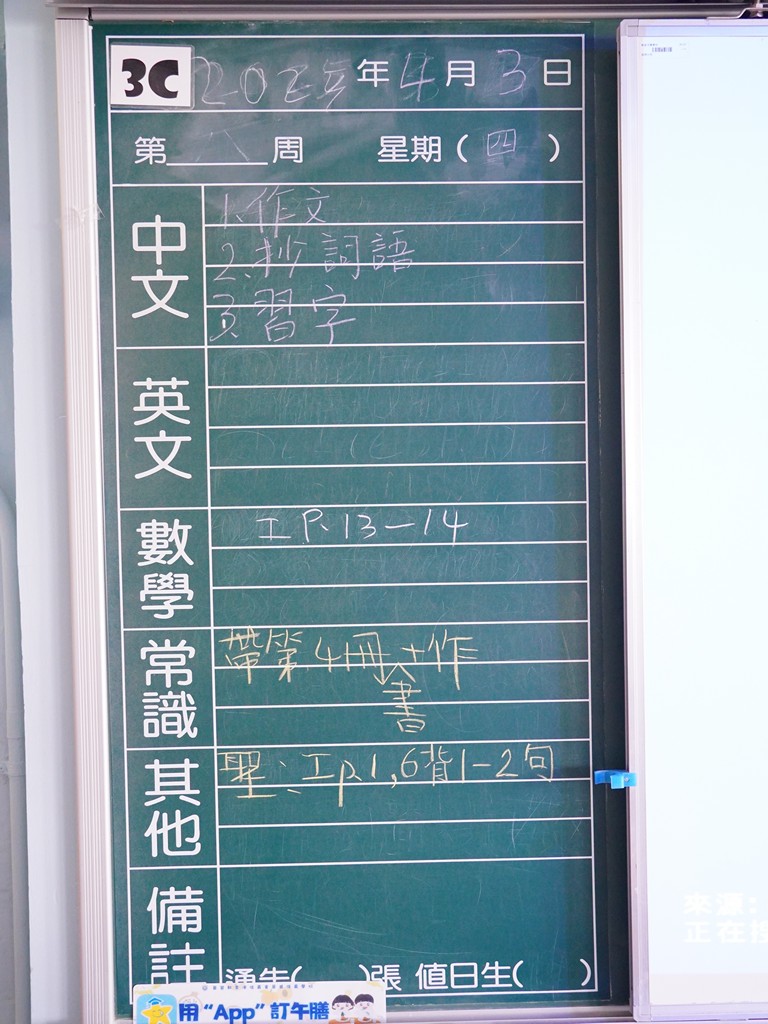 3C 2025年4月3日
第 六 周 星期（四）
中文
1.作文
2.抄詞語
3.習字
英文
數學
工 P.13-14
常識
帶第4冊書+作
其他
聖：工p.1,6背1-2句
備註
通告( )張 值日生( )
用“App”訂午膳
來源:
正在